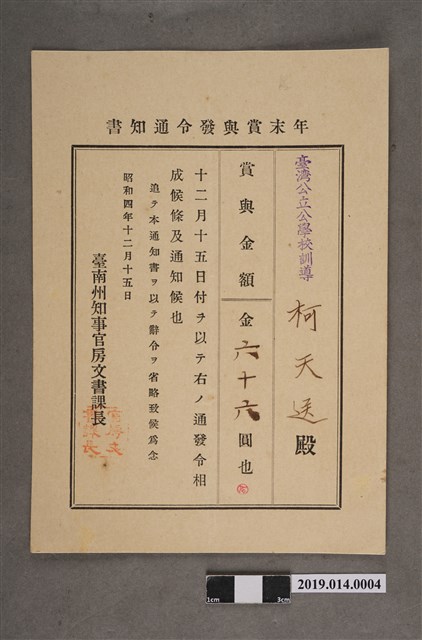 年末賞與發令通知書
臺灣公立公學校訓導
柯天送殿
賞與金額 金六十六圓也
十二月十五日付ヲ以テ右ノ通發令相
成候條及通知候也
追テ本通知書ヲ以テ辭令ヲ省略致候爲念
昭和四年十二月十五日
臺南州知事官房文書課長
1cm 3cm
2019.014.0004